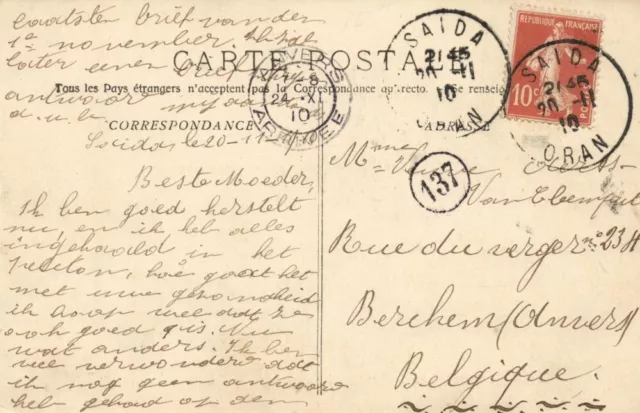 laatsten brief van den
1e november
later eenen brief
antwoord
d.u.b.
CARTE POSTALE
Tous les Pays étrangers n'acceptent pas la Correspondance au recto. (Se renseigner
CORRESPONDANCE
ADRESSE
Saida le 20-11-10
Beste Moeder,
Ik ben goed herstelt
nu, en ik heb alles
ingehaald in het
peloton, hoe gaat het
met uwe gezondheid
ik hoop wel dat ze
ook goed is. Nu
wat anders. Ik ben
zeer verwonderd dat
ik nog geen antwoord
heb gehad op den
ANVERS
8
24 XI
10
ARRIVÉE
SAIDA
21 45
20 -11
10
ORAN
RÉPUBLIQUE FRANÇAISE
10c
POSTES
SAIDA
21 45
20 -11
10
ORAN
137
Mme
Van
Rue du verger n° 23
Berchem (Anvers)
Belgique.